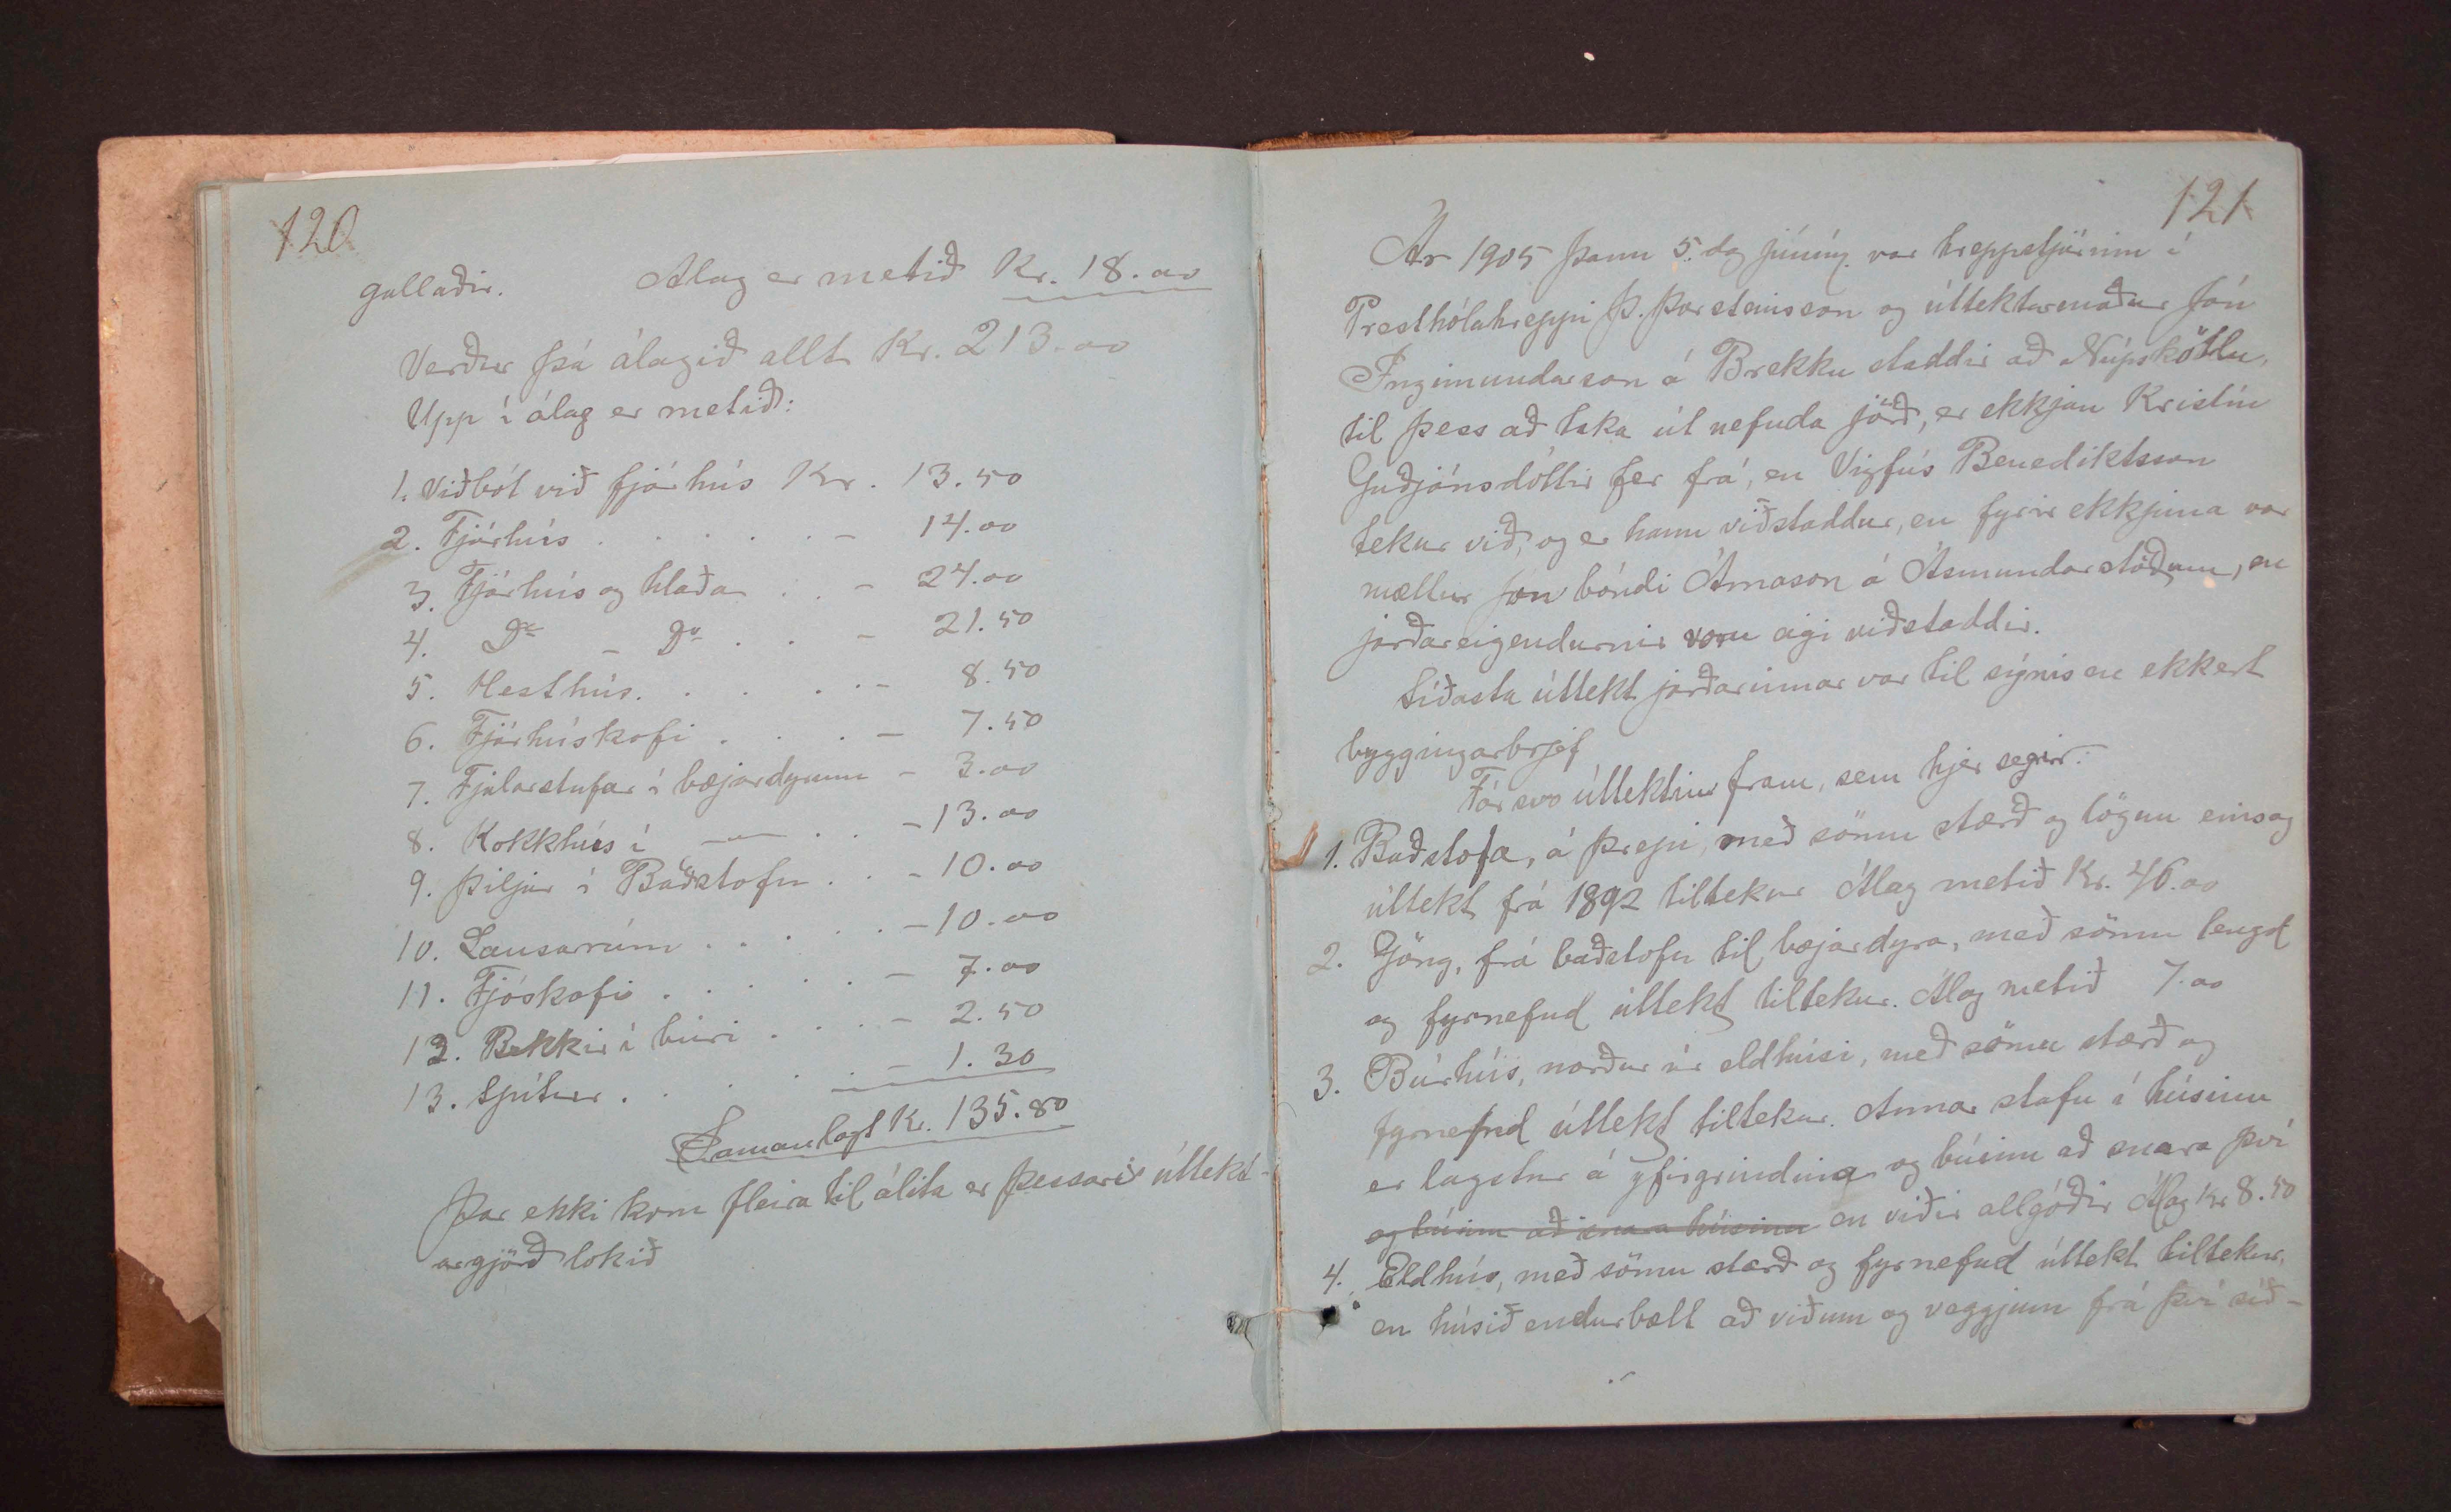 120
gallaðir. Álag er metið Kr. 18.00
Verður þá álagið allt Kr. 213.00
Upp í álag er metið:
1. Viðbót við fjárhús Kr. 13.50
2. Fjárhús . . . . . - 14.00
3. Fjárhús og hlaða . . - 24.00
4. Do - Do . . - 21.50
5. Hesthús. . . . . - 8.50
6. Fjárhúskofi . . . - 7.50
7. Fjalarstufar í bæjardyrum - 3.00
8. Kokkhús í —„— . . - 13.00
9. Þiljur í Baðstofu . . - 10.00
10. Lausarúm . . . . . - 10.00
11. Fjóskofi . . . . . - 7.00
12. Bekkir í búri . . . - 2.50
13. Spítur . . . . - 1.30
Samanlagt Kr. 135.80
Þar ekki kom fleira til álita er þessari úttekt-
argjörð lokið
121
Ár 1905 þann 5. dag júním. var hreppstjórinn í
Presthólahreppi Þ. Þorsteinsson og úttektarmaður Jón
Ingimundarson á Brekku staddir að Núpskötlu,
til þess að taka út nefnda jörð, er ekkjan Kristín
Guðjónsdóttir fer frá, en Vigfús Benediktsson
tekur við, og er hann viðstaddur, en fyrir ekkjuna var
mættur Jón bóndi Árnason á Ásmundarstöðum, en
jarðareigendurnir voru eigi viðstaddir.
Síðasta úttekt jarðarinnar var til sýnis en ekkert
byggingarbrjef
Fór svo úttektin fram, sem hjer segir:
1. Baðstofa, á þrepi, með sömu stærð og lögun eins og
úttekt frá 1892 tiltekur Álag metið Kr. 46.00
2. Göng, frá baðstofu til bæjardyra, með sömu lengd
og fyrnefnd úttekt tiltekur. Álag metið 7.00
3. Búrhús, norður úr eldhúsi, með sömu stærð og
fyrnefnd úttekt tiltekur. Annar stafn í húsinu
er lagstur á yfirgrindina og búinn að snara því
og búinn að snara húsinu en viðir allgóðir Álag Kr 8.50
4. Eldhús, með sömu stærð og fyrnefnd úttekt tiltekur,
en húsið endurbætt að viðum og veggjum frá því síð-